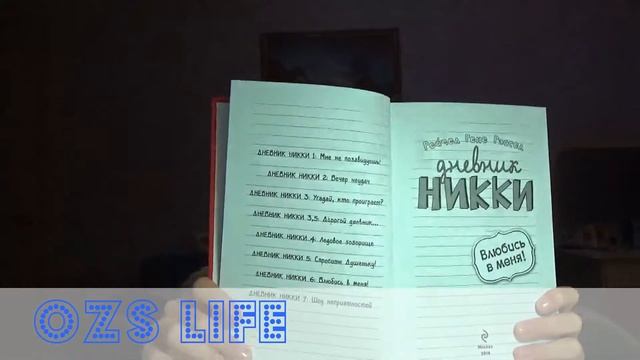 ДНЕВНИК НИККИ 1: Мне не позавидуешь!
ДНЕВНИК НИККИ 2: Вечер неудач
ДНЕВНИК НИККИ 3: Угадай, кто проиграет?
ДНЕВНИК НИККИ 3,5: Дорогой дневник...
ДНЕВНИК НИККИ 4: Ледовое побоище
ДНЕВНИК НИККИ 5: Спросите Душеньку!
ДНЕВНИК НИККИ 6: Влюбись в меня!
ДНЕВНИК НИККИ 7: Шоу неприятностей
Рейчел Рене Рассел
дневник
НИККИ
Влюбись
в меня!
Москва
OZS LIFE